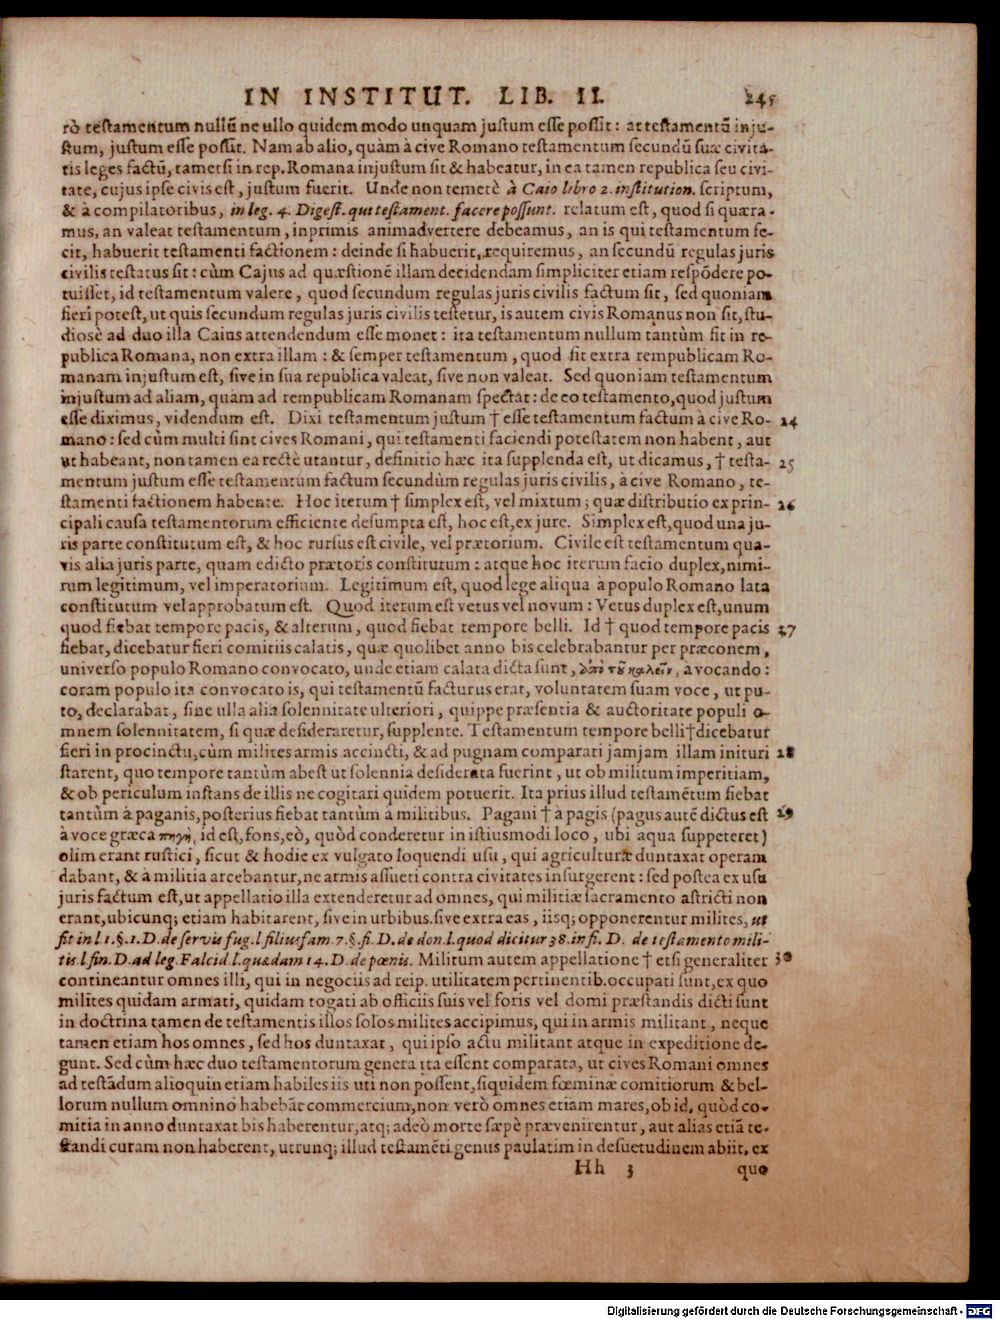 IN INSTITUT. LIB. II. 245
rò testamentum nullũ ne ullo quidem modo unquam justum esse possit: at testamentũ inju-
stum, justum esse possit. Nam ab alio, quàm à cive Romano testamentum secundũ suæ civita-
tis leges factũ, tametsi in rep. Romana injustum sit & habeatur, in ea tamen republica seu civi-
tate, cujus ipse civis est, justum fuerit. Unde non temerè à Caio libro 2. institution. scriptum,
& à compilatoribus, in leg. 4. Digest. qui testament. facere possunt. relatum est, quod si quæra-
mus, an valeat testamentum, inprimis animadvertere debeamus, an is qui testamentum fe-
cit, habuerit testamenti factionem: deinde si habuerit, requiremus, an secundũ regulas juris
civilis testatus sit: cùm Cajus ad quæstionẽ illam decidendam simpliciter etiam respõdere po-
tuisset, id testamentum valere, quod secundum regulas juris civilis factum sit, sed quoniam
fieri potest, ut quis secundum regulas juris civilis testetur, is autem civis Romanus non sit, stu-
diosè ad duo illa Caius attendendum esse monet: ita testamentum nullum tantùm sit in re-
publica Romana, non extra illam: & semper testamentum, quod sit extra rempublicam Ro-
manam injustum est, sive in sua republica valeat, sive non valeat. Sed quoniam testamentum
injustum ad aliam, quàm ad rempublicam Romanam spectat: de eo testamento, quod justum
esse diximus, videndum est. Dixi testamentum justum † esse testamentum factum à cive Ro- 24
mano: sed cùm multi sint cives Romani, qui testamenti faciendi potestatem non habent, aut
ut habeant, non tamen ea rectè utantur, definitio hæc ita supplenda est, ut dicamus, † testa- 25
mentum justum esse testamentum factum secundùm regulas juris civilis, à cive Romano, te-
stamenti factionem habente. Hoc iterum † simplex est, vel mixtum; quæ distributio ex prin- 26
cipali causa testamentorum efficiente desumpta est, hoc est, ex jure. Simplex est, quod una ju-
ris parte constitutum est, & hoc rursus est civile, vel prætorium. Civile est testamentum qua-
vis alia juris parte, quam edicto prætoris constitutum: atque hoc iterum facio duplex, nimi-
rum legitimum, vel imperatorium. Legitimum est, quod lege aliqua à populo Romano lata
constitutum vel approbatum est. Quod iterum est vetus vel novum: Vetus duplex est, unum
quod fiebat tempore pacis, & alterum, quod fiebat tempore belli. Id † quod tempore pacis 27
fiebat, dicebatur fieri comitiis calatis, quæ quolibet anno bis celebrabantur per præconem,
universo populo Romano convocato, unde etiam calata dicta sunt, ἀπὸ τοῦ καλεῖν, à vocando:
coram populo ita convocato is, qui testamentũ facturus erat, voluntatem suam voce, ut pu-
to, declarabat, sine ulla alia solennitate ulteriori, quippe præsentia & auctoritate populi o-
mnem solennitatem, si quæ desideraretur, supplente. Testamentum tempore belli † dicebatur
fieri in procinctu, cùm milites armis accincti, & ad pugnam comparati jamjam illam inituri 28
starent, quo tempore tantùm abest ut solennia desiderata fuerint, ut ob militum imperitiam,
& ob periculum instans de illis ne cogitari quidem potuerit. Ita prius illud testamẽtum fiebat
tantùm à paganis, posterius fiebat tantùm à militibus. Pagani † à pagis (pagus autẽ dictus est 29
à voce græca πηγὴ, id est, fons, eò, quòd conderetur in istiusmodi loco, ubi aqua suppeteret)
olim erant rustici, sicut & hodie ex vulgato loquendi usu, qui agriculturæ duntaxat operam
dabant, & à militia arcebantur, ne armis assueti contra civitates insurgerent: sed postea ex usu
juris factum est, ut appellatio illa extenderetur ad omnes, qui militiæ sacramento astricti non
erant, ubicunq; etiam habitarent, sive in urbibus. sive extra eas, iisq; opponerentur milites, ut
fit in l 1. §. 1. D. de servis fug. l filiusfam. 7. §. fi. D. de don. l. quod dicitur 38. in fi. D. de testamento mili-
tis l. fin. D. ad leg. Falcid. l. quædam 14. D. de pœnis. Militum autem appellatione † etsi generaliter 30
contineantur omnes illi, qui in negociis ad reip. utilitatem pertinentib. occupati sunt, ex quo
milites quidam armati, quidam togati ab officiis suis vel foris vel domi præstandis dicti sunt
in doctrina tamen de testamentis illos solos milites accipimus, qui in armis militant, neque
tamen etiam hos omnes, sed hos duntaxat, qui ipso actu militant atque in expeditione de-
gunt. Sed cùm hæc duo testamentorum genera ita essent comparata, ut cives Romani omnes
ad testãdum alioquin etiam habiles iis uti non possent, siquidem fœminæ comitiorum & bel-
lorum nullum omnino habebãt commercium, non verò omnes etiam mares, ob id, quòd co-
mitia in anno duntaxat bis haberentur, atq; adeò morte sæpè prævenirentur, aut alias etiã te-
standi curam non haberent, utrunq; illud testamẽti genus paulatim in desuetudinem abiit, ex
Hh 3 quo
Digitalisierung gefördert durch die Deutsche Forschungsgemeinschaft - DFG